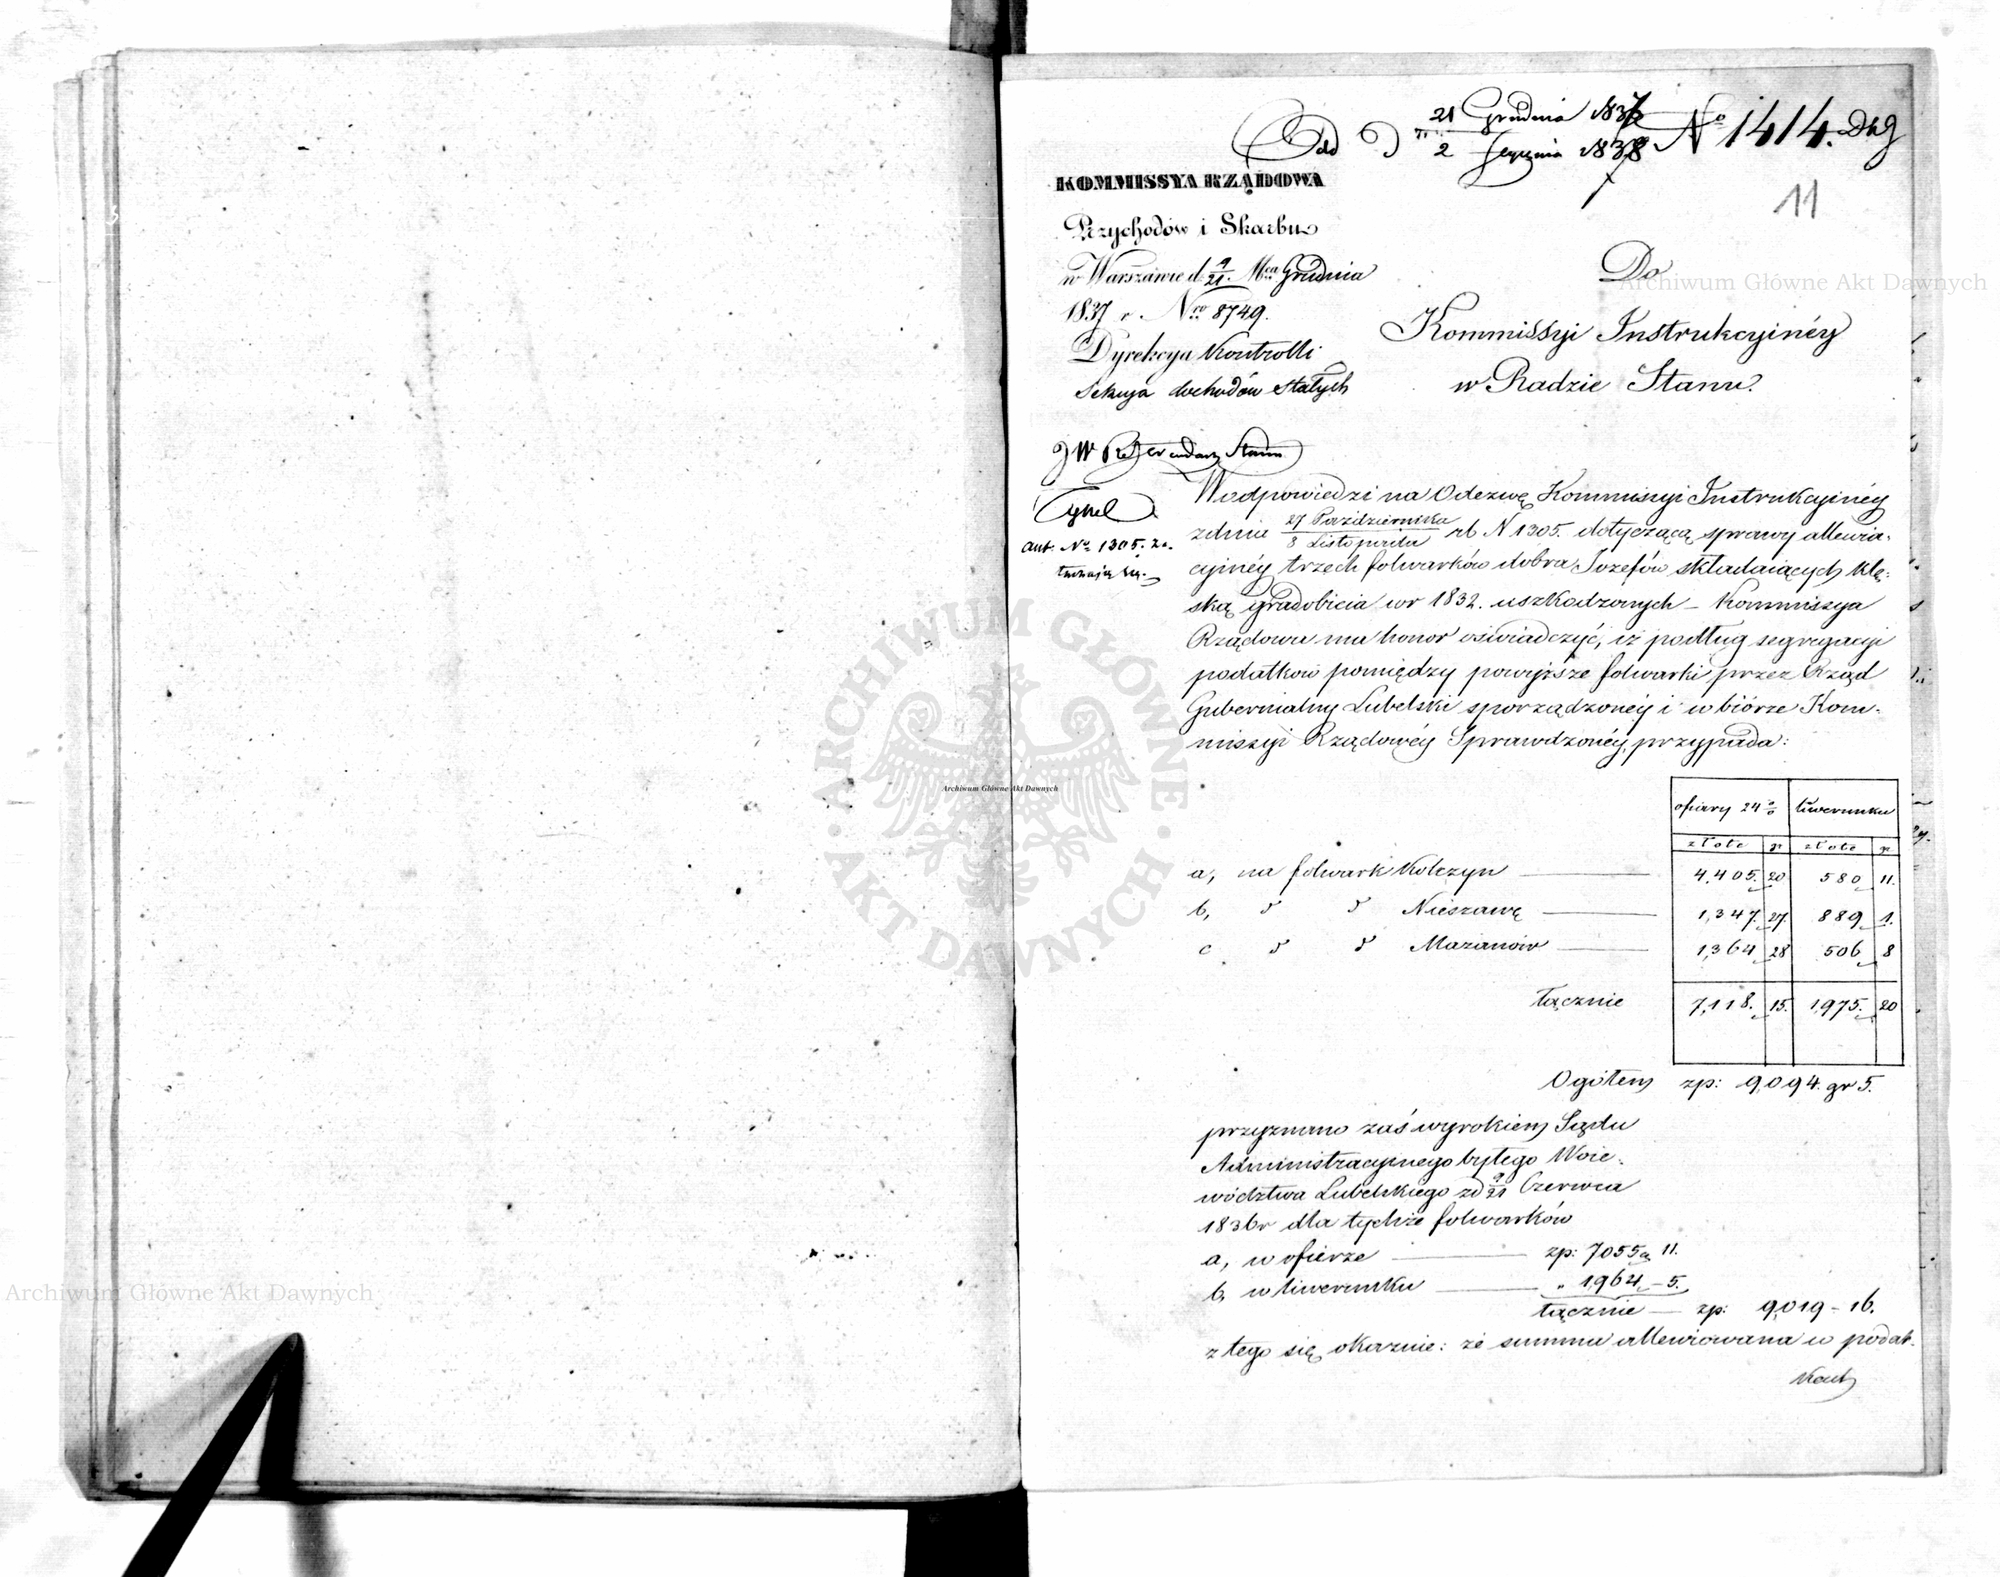 21 Grudnia 1837
Odd D 2 Stycznia 1838 No 1414. Dkg
11
KOMMISSYA RZĄDOWA
Przychodów i Skarbu
w Warszawie d. 9/21. Mca Grudnia
1837 r. Nro 8749.
Dyrekcya Kontrolli
Sekcya dochodów Stałych
Do
Kommissyi Instrukcyinéy
w Radzie Stanu.
JW Referendarz Stanu
ant. No 1305. za.
W odpowiedzi na Odezwę Kommissyi Instrukcyinéy
z dnia 27 Października / 8 Listopada rb N 1305. dotyczącą sprawy allewia-
cyinéy trzech folwarków dobra Józefów składaiących klę-
ską gradobicia w r 1832. uszkodzonych – Kommissya
Rządowa ma honor oświadczyć, iż podług segregacyi
podatków pomiędzy powyższe folwarki przez Rząd
Gubernialny Lubelski sporządzonéy i w biórze Kom-
missyi Rządowéy Sprawdzonéy, przypada:
ofiary 24 % liwerunku
złote gr złote gr
a, na folwark Kolczyn 4,405. 20 580 11.
b, d d Nieszawę 1,347. 27. 889 1.
c d d Mazanów 1,364 28 506 8
łącznie 7,118. 15. 1,975. 20
Ogółem zp: 9,094. gr 5.
przyznano zaś wyrokiem Sądu
Administracyinego byłego Woie-
wództwa Lubelskiego z d 9/21 Czerwca
1836 r dla tychże folwarków
a, w ofierze zp: 7055 g 11.
b, w liwerunku „ 1,964 – 5.
łącznie — zp: 9,019 – 16.
z tego się okaznie: że summa allewiowana w podat-
kach
Archiwum Główne Akt Dawnych
Archiwum Główne Akt Dawnych
Archiwum Główne Akt Dawnych
ARCHIWUM GŁÓWNE
AKT DAWNYCH